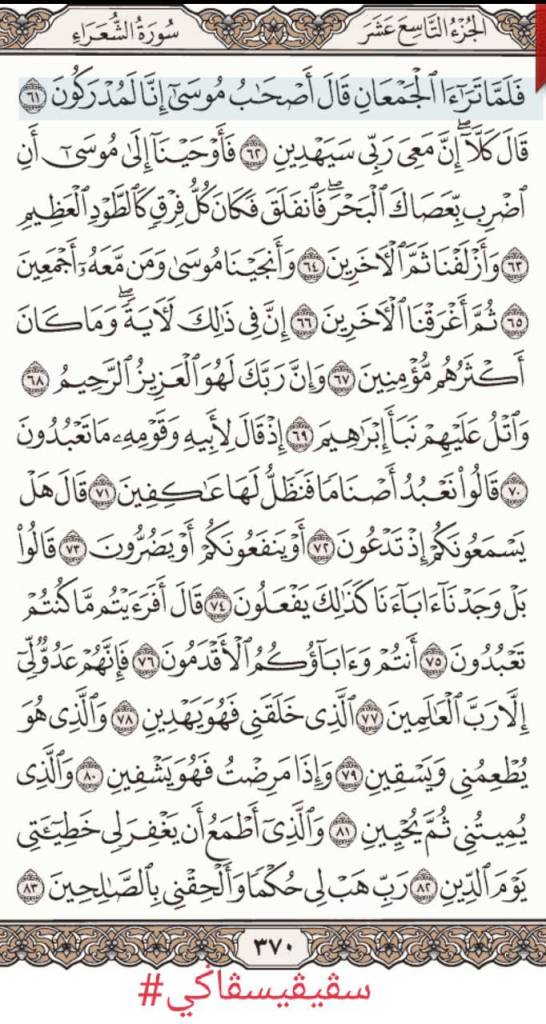 الجُزْءُ التَّاسِعَ عَشَرَ
سُورَةُ الشُّعَرَاءِ
فَلَمَّا تَرَٰٓءَا ٱلْجَمْعَانِ قَالَ أَصْحَٰبُ مُوسَىٰٓ إِنَّا لَمُدْرَكُونَ ٦١
قَالَ كَلَّآ ۖ إِنَّ مَعِىَ رَبِّى سَيَهْدِينِ ٦٢ فَأَوْحَيْنَآ إِلَىٰ مُوسَىٰٓ أَنِ
ٱضْرِب بِّعَصَاكَ ٱلْبَحْرَ ۖ فَٱنفَلَقَ فَكَانَ كُلُّ فِرْقٍ كَٱلطَّوْدِ ٱلْعَظِيمِ
٦٣ وَأَزْلَفْنَا ثَمَّ ٱلْـَٔاخَرِينَ ٦٤ وَأَنجَيْنَا مُوسَىٰ وَمَن مَّعَهُۥٓ أَجْمَعِينَ
٦٥ ثُمَّ أَغْرَقْنَا ٱلْـَٔاخَرِينَ ٦٦ إِنَّ فِى ذَٰلِكَ لَـَٔايَةً ۖ وَمَا كَانَ
أَكْثَرُهُم مُّؤْمِنِينَ ٦٧ وَإِنَّ رَبَّكَ لَهُوَ ٱلْعَزِيزُ ٱلرَّحِيمُ ٦٨
وَٱتْلُ عَلَيْهِمْ نَبَأَ إِبْرَٰهِيمَ ٦٩ إِذْ قَالَ لِأَبِيهِ وَقَوْمِهِۦ مَا تَعْبُدُونَ
٧٠ قَالُوا۟ نَعْبُدُ أَصْنَامًا فَنَظَلُّ لَهَا عَٰكِفِينَ ٧١ قَالَ هَلْ
يَسْمَعُونَكُمْ إِذْ تَدْعُونَ ٧٢ أَوْ يَنفَعُونَكُمْ أَوْ يَضُرُّونَ ٧٣ قَالُوا۟
بَلْ وَجَدْنَآ ءَابَآءَنَا كَذَٰلِكَ يَفْعَلُونَ ٧٤ قَالَ أَفَرَءَيْتُم مَّا كُنتُمْ
تَعْبُدُونَ ٧٥ أَنتُمْ وَءَابَآؤُكُمُ ٱلْأَقْدَمُونَ ٧٦ فَإِنَّهُمْ عَدُوٌّ لِّىٓ
إِلَّا رَبَّ ٱلْعَٰلَمِينَ ٧٧ ٱلَّذِى خَلَقَنِى فَهُوَ يَهْدِينِ ٧٨ وَٱلَّذِى هُوَ
يُطْعِمُنِى وَيَسْقِينِ ٧٩ وَإِذَا مَرِضْتُ فَهُوَ يَشْفِينِ ٨٠ وَٱلَّذِى
يُمِيتُنِى ثُمَّ يُحْيِينِ ٨١ وَٱلَّذِىٓ أَطْمَعُ أَن يَغْفِرَ لِى خَطِيٓـَٔتِى
يَوْمَ ٱلدِّينِ ٨٢ رَبِّ هَبْ لِى حُكْمًا وَأَلْحِقْنِى بِٱلصَّٰلِحِينَ ٨٣
٣٧٠
#سڤيڤيسڤاكي